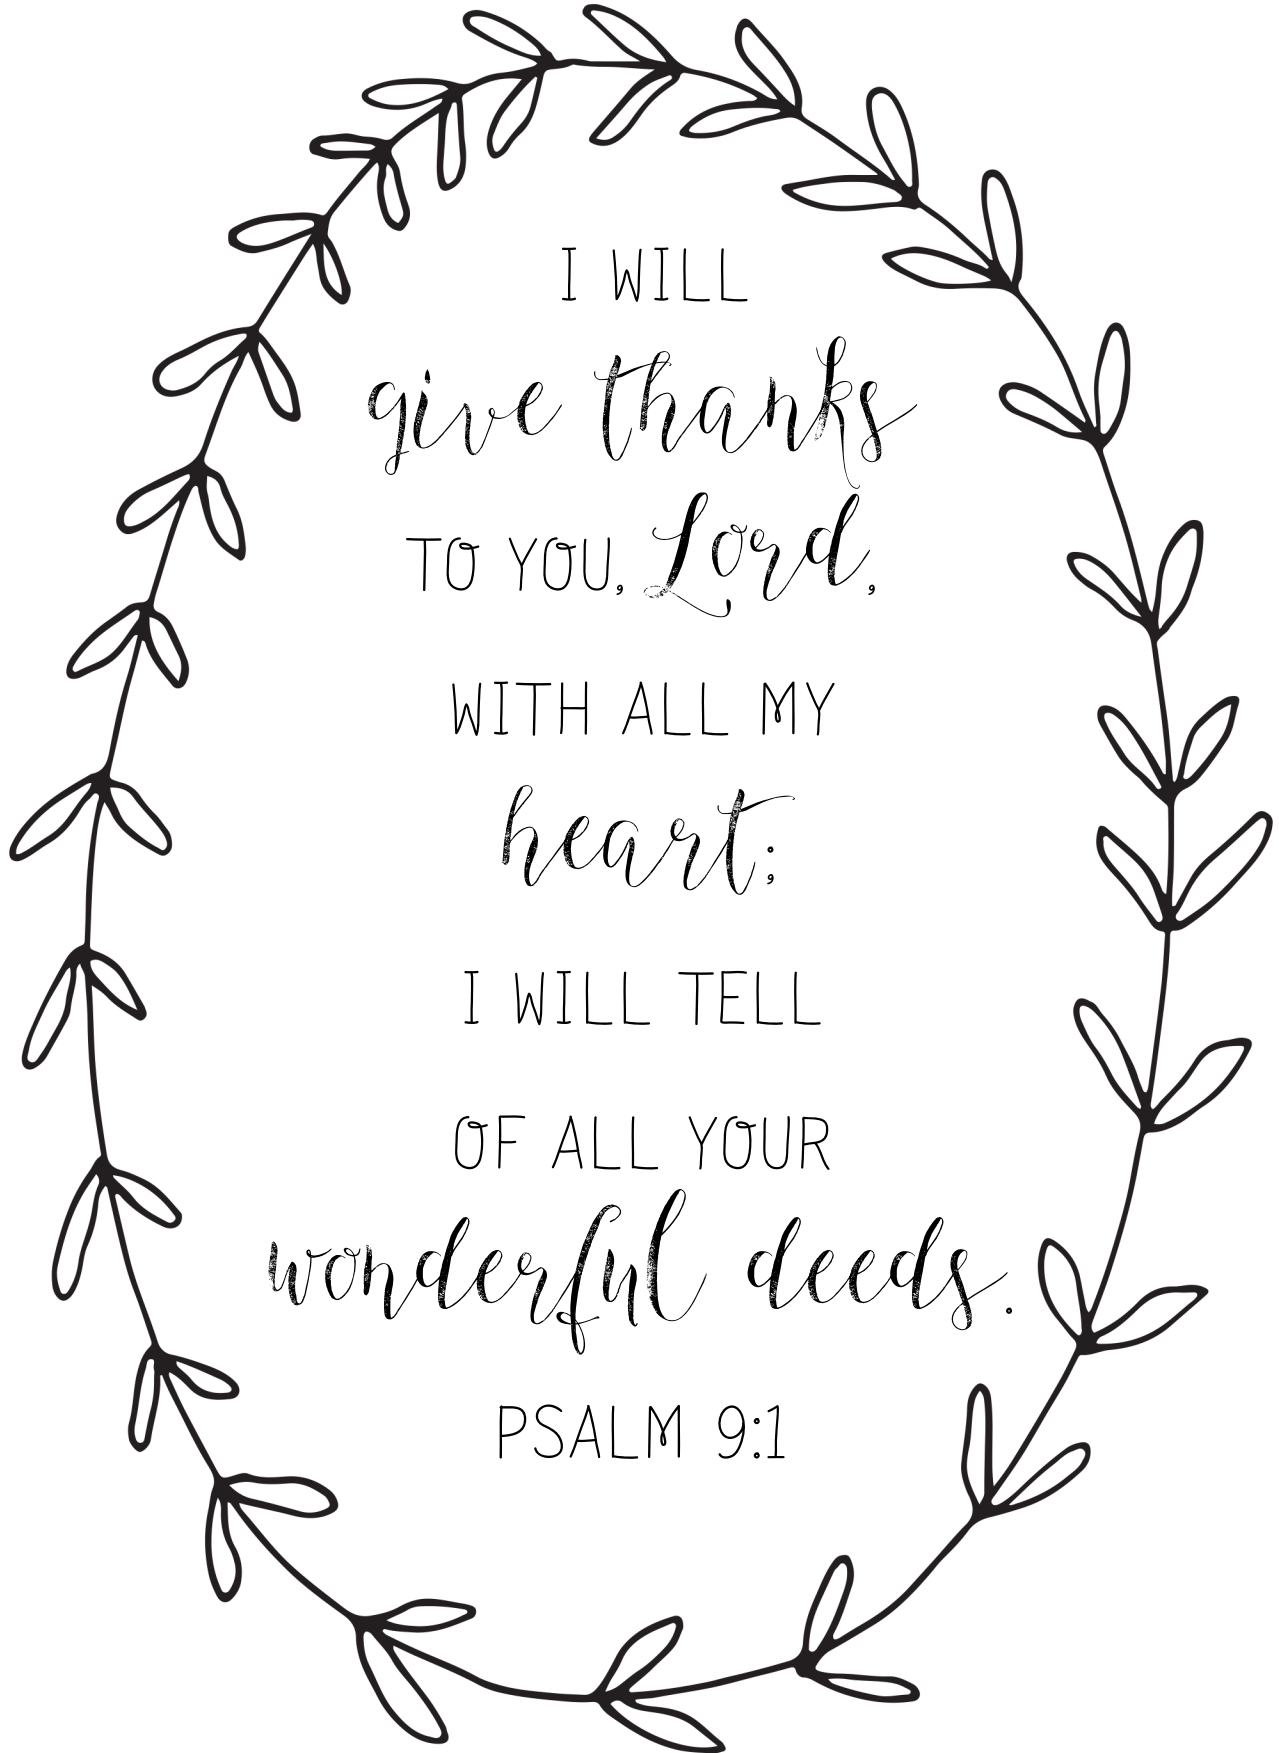 I WILL
give thanks
TO YOU, Lord,
WITH ALL MY
heart;
I WILL TELL
OF ALL YOUR
wonderful deeds.
PSALM 9:1